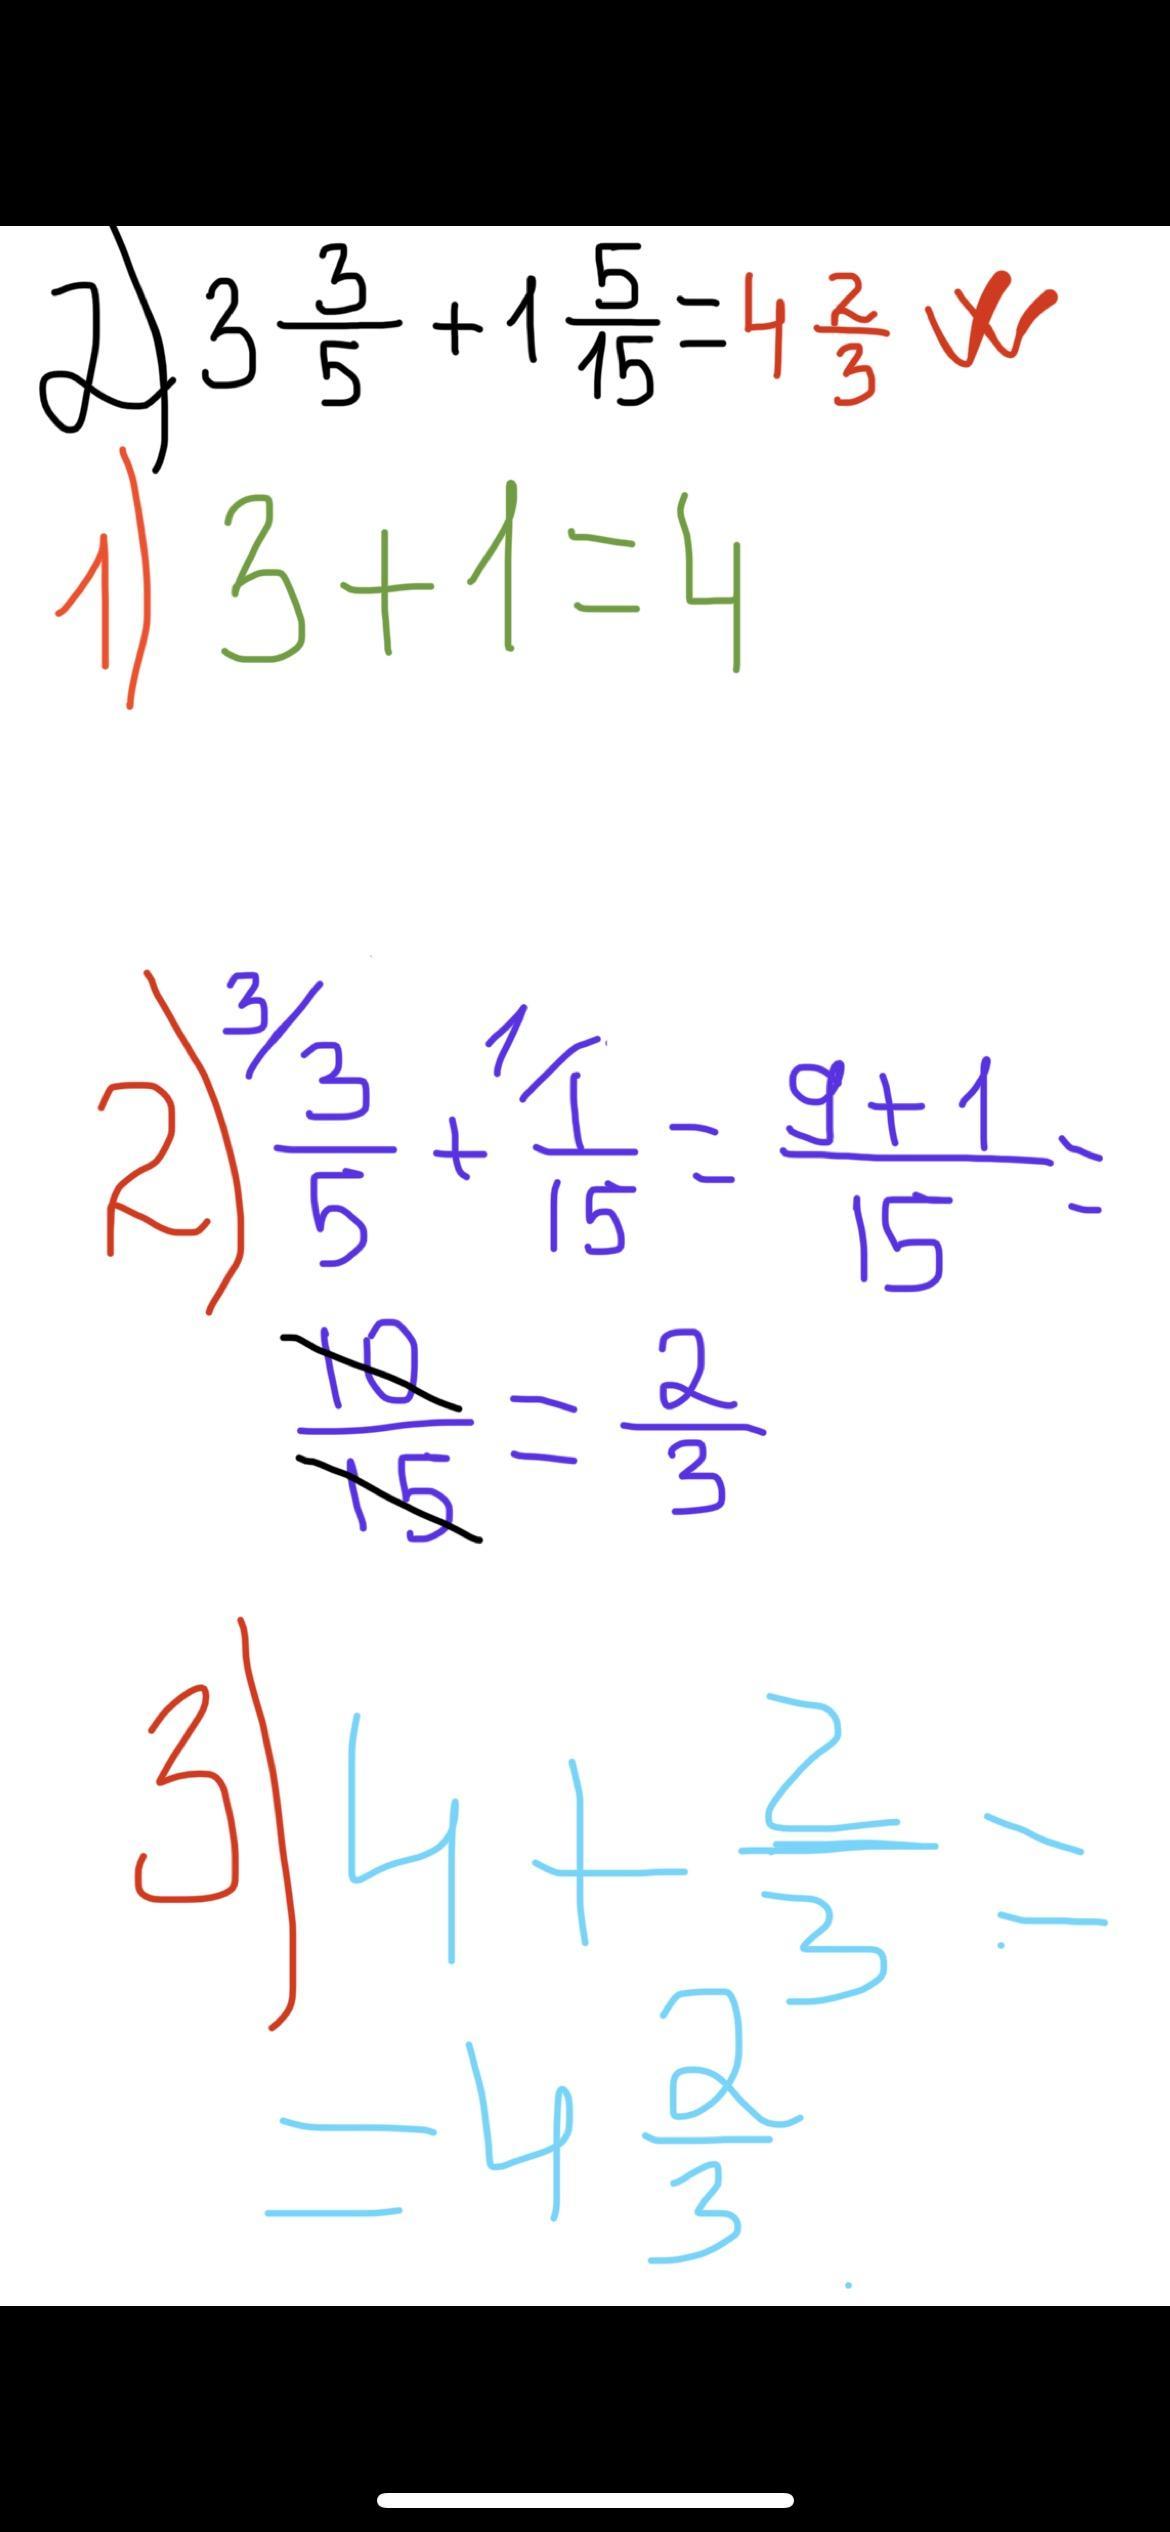 2) 3 3/5 + 1 5/15 = 4 2/3
1) 3 + 1 = 4
2) 3/ 3/5 + 1/ 1/15 = (9+1)/15 =
10/15 = 2/3
3) 4 + 2/3 =
= 4 2/3